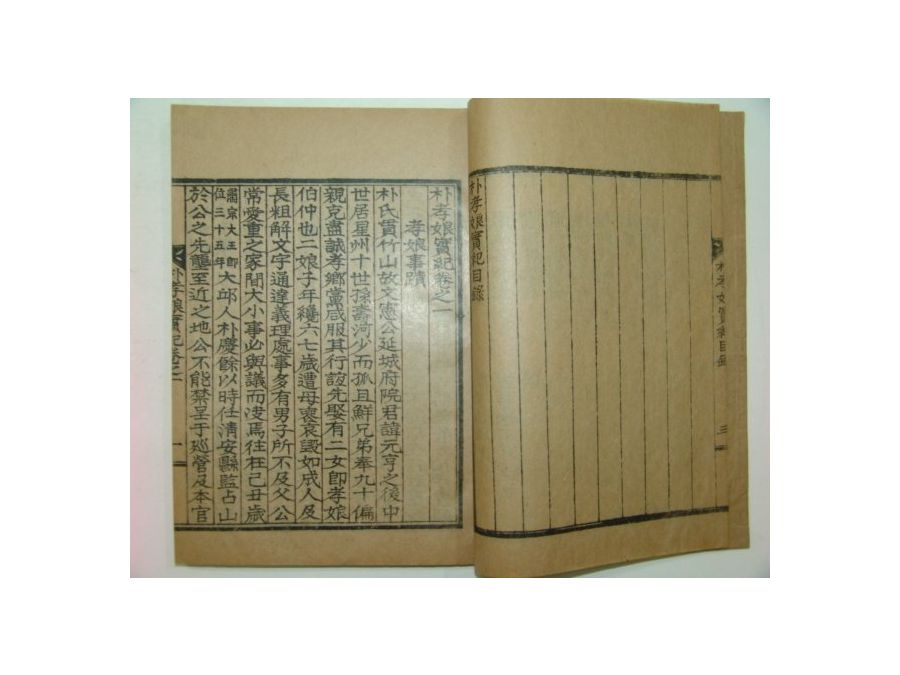 朴孝娘實紀目錄
三
朴孝娘實紀卷之一
孝娘事蹟
朴氏貫竹山故文憲公延城府院君諱元亨之後中
世居星州十世孫壽河少而孤且鮮兄弟奉九十偏
親克盡誠孝鄉黨咸服其行誼先娶有二女卽孝娘
伯仲也二娘子年纔六七歲遭母喪哀毀如成人及
長粗解文字通達義理處事多有男子所不及父公
常愛重之家間大小事必與議而決焉往在己丑歲
肅宗大王卽位三十五年大邱人朴慶餘以時任淸安縣監占山
於公之先壟至近之地公不能禁呈于巡營及本官
朴孝娘實紀卷之一
一